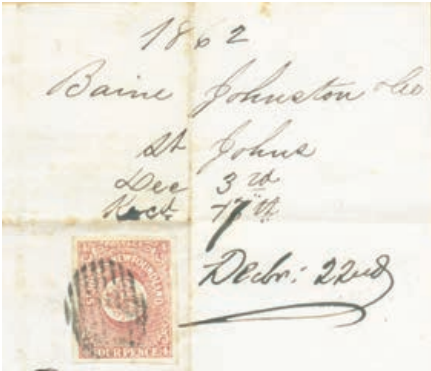 1862
Baine Johnston & Co
St Johns
Dec 3rd
Recd 17th
Decbr: 22nd
ST. JOHN'S NEWFOUNDLAND
FOUR PENCE